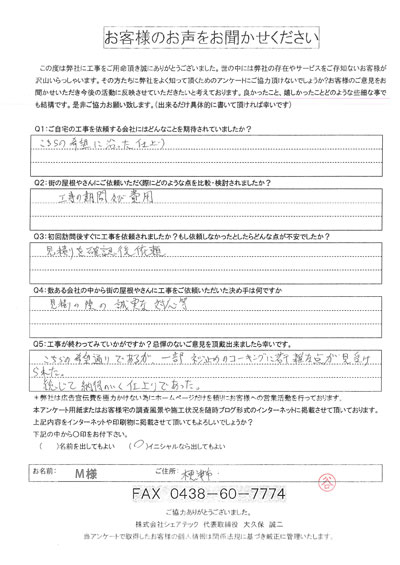 お客様のお声をお聞かせください
この度は弊社に工事をご用命頂き誠にありがとうございました。世の中には弊社の存在やサービスをご存知ないお客様が
沢山いらっしゃいます。その方たちに弊社をよく知って頂くためのアンケートにご協力頂けないでしょうか?お客様のご意見をお
聞かせいただき今後の活動に反映させていただきたいと考えております。良かったこと、嬉しかったことどのような些細な事で
も結構です。是非ご協力お願い致します。(出来るだけ具体的に書いて頂ければ幸いです)
Q1:ご自宅の工事を依頼する会社にはどんなことを期待されていましたか?
こちらの希望に沿った仕上り
Q2:街の屋根やさんにご依頼いただく際にどのような点を比較・検討されましたか?
工事の期間及び費用
Q3:初回訪問後すぐに工事を依頼されましたか?もし依頼しなかったとしたらどんな点が不安でしたか?
見積りを確認後依頼
Q4:数ある会社の中から街の屋根やさんに工事をご依頼いただいた決め手は何ですか
見積りの際の誠実な対応等
Q5:工事が終わってみていかがですか?忌憚のないご意見を頂戴出来ましたら幸いです。
こちらの希望通りであるが一部ネジ止めのコーキングに若干雑な点が見受け
られた。
総じて納得いく仕上りであった。
*弊社は広告宣伝費を極力かけない為にホームページだけを頼りにお客様への営業活動を行っております。
本アンケート用紙またはお客様宅の調査風景や施工状況を随時ブログ形式のインターネットに掲載させて頂いております。
上記内容をインターネットや印刷物に掲載させて頂いてもよろしいでしょうか?
下記の中から〇印をお付下さい。
( )名前を出してもよい (〇)イニシャルなら出してもよい
お名前: M様 ご住所:
FAX 0438-60-7774
ご協力ありがとうございました。
株式会社シェアテック 代表取締役 大久保 誠二
当アンケートで取得したお客様の個人情報は関係法規に基づき厳正に管理いたします。